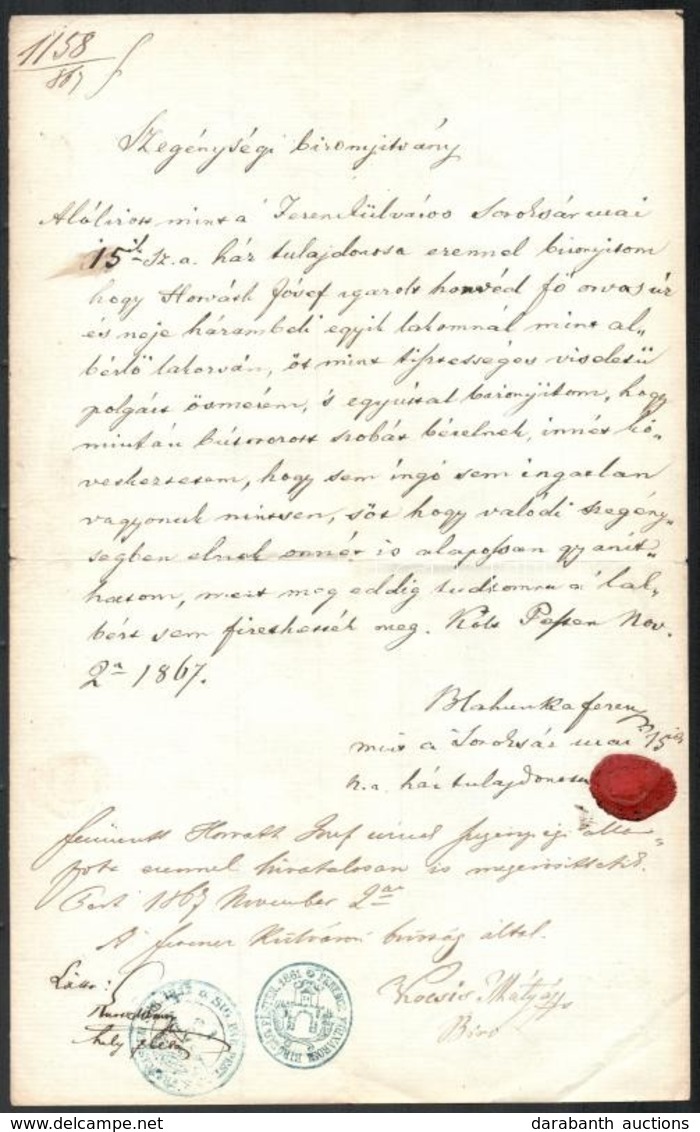 1158
867
Szegénységi bizonyitvány
Alólirott mint a Ferencz külváros Soroksár utczai
15ik sz.a. ház tulajdonossa ezennel bizonyitom
hogy Horváth József igazolt honvéd fő orvos úr
és neje házambeli egyik lakomnál mint al„
bérlő lakozván, őt mint tisztességes viseletű
polgárt ösmerém, s egyúttal bizonyitom, hogy
miután bútorozott szobát bérelnek, innét kö„
vetkeztetem, hogy sem ingó sem ingatlan
vagyonuk nintsen, sőt hogy valódi szegény„
ségben élnek onnét is alapossan gyanit„
hatom, mert meg eddig tudtomra a' lak„
bért sem fizethették meg. Költ Pesten Nov.
2án 1867.
Blahunka ferenz
mint a Soroksár utczai 15ik
sz.a. ház tulajdonossa
Horváth Josef urnak szegénységi álla„
pota ezennel hivatalosan is megerősittetik.
Pest 1867 November 2án
A ferencz Külvárosi biróság által.
Látta:
Kocsis Mátyás
Biró
1861
darabanth auctions